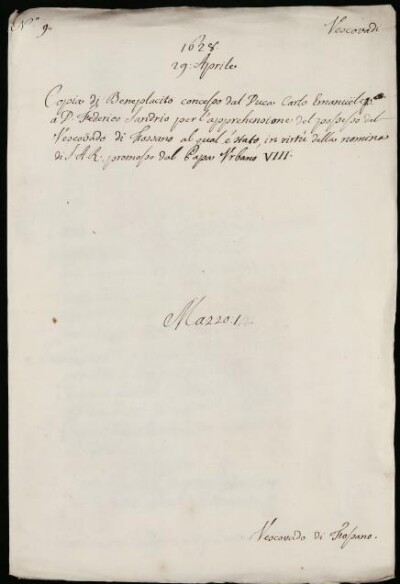 N.º 9.
Vescovadi
1628.
29. Aprile
Copia di Beneplacito concesso dal Duca Carlo Emanuel p.º
a D. Federico Sandrio per l'apprehensione del possesso del
Vescovado di Fossano al qual è stato, in virtù della nomina
di S.A.R. promosso dal Papa Urbano VIII.
Mazzo. 1.
Vescovado di Fossano.